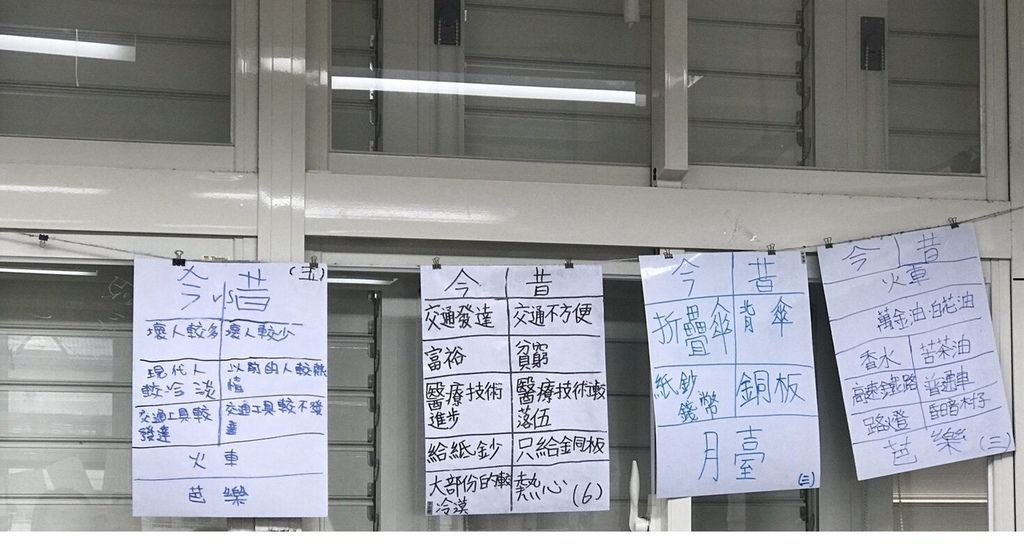 今 vs 昔 (五)
壞人較多 壞人較少
現代人 以前的人較熱
較冷淡 情
交通工具較 交通工具較不發
發達 達
火車
芭樂
今 昔
交通發達 交通不方便
富裕 貧窮
醫療技術 醫療技術較
進步 落伍
給紙鈔 只給金同板
大部份的較 熱心 (6)
冷漠
今 昔
折疊傘 背傘
紙鈔 銅板
錢幣
月臺
(二)
今 昔
火車
萬金油 白花油
香水 苦茶油
高速鐵路 普通車
路燈
芭樂 (三)